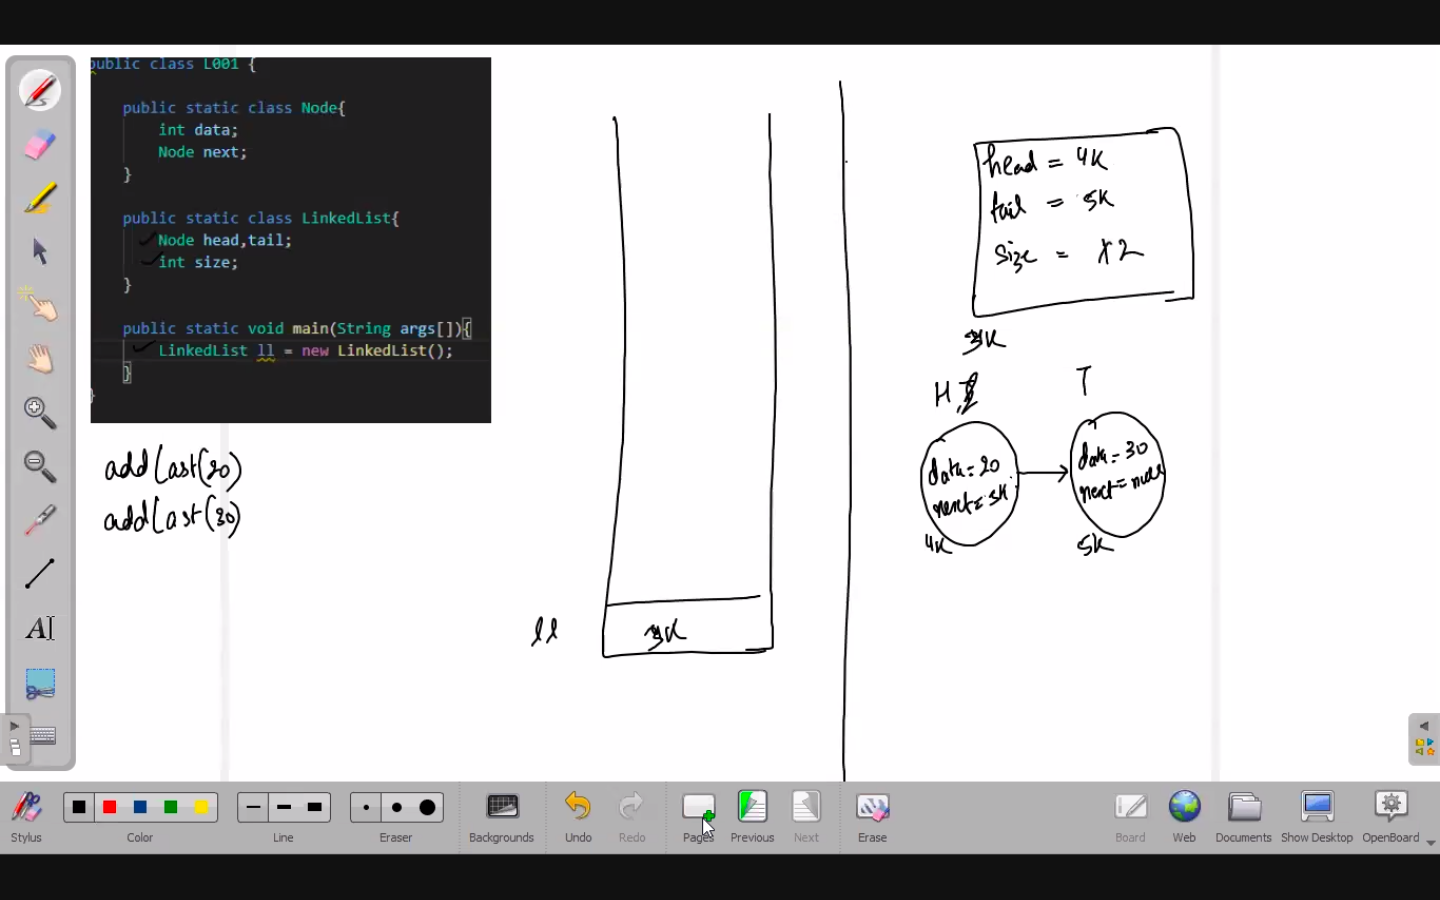 public class L001 {
public static class Node{
int data;
Node next;
}
public static class LinkedList{
Node head,tail;
int size;
}
public static void main(String args[]){
LinkedList ll = new LinkedList();
}
}
addLast(20)
addLast(30)
ll
3K
head = 4K
tail = 5K
size = 1 2
3K
H T
T
data=20
next=5K
4K
data=30
next=null
5K
A
Stylus
Color
Line
Eraser
Backgrounds
Undo
Redo
Pages
Previous
Next
Erase
Board
Web
Documents
Show Desktop
OpenBoard